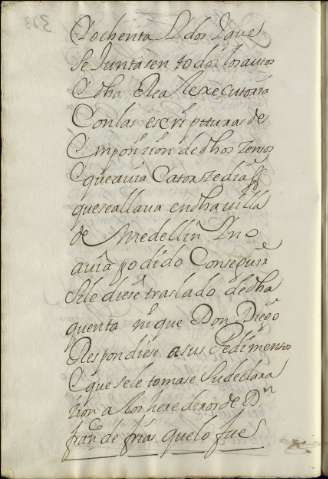 Y ochenta y dos y que
se Juntasen todos los autos
y dha Real executoria
Con las escripturas de
Ymposizion de dhos zensos
que avia Catorze dias
que se allava en dha villa
de Medellin y no
avia podido Conseguir
Se le diese traslado de dha
quenta ni que Don Diego
Respondiese a su Pedimento
y que se le tomase Su declara
zion a los herederos de Dn
franco de frias que lo fue